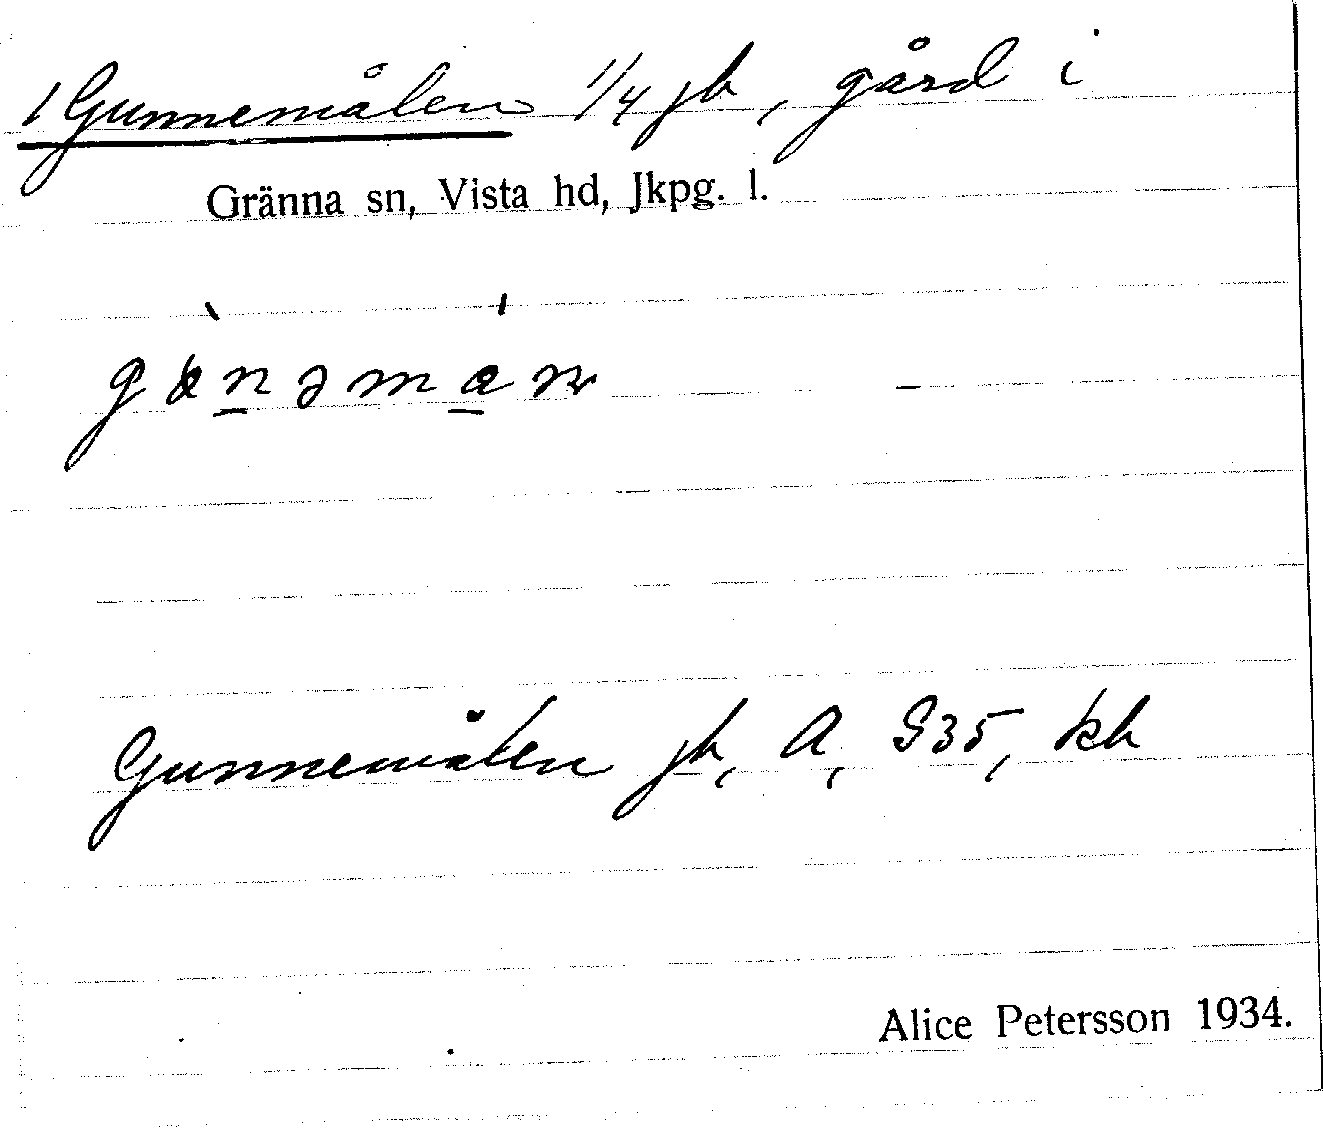 1 Gunnemålen 1/4 jb, gård i
Gränna sn, Vista hd, Jkpg. l.
Gunnemålen jb, A, G35, kb
Alice Petersson 1934.